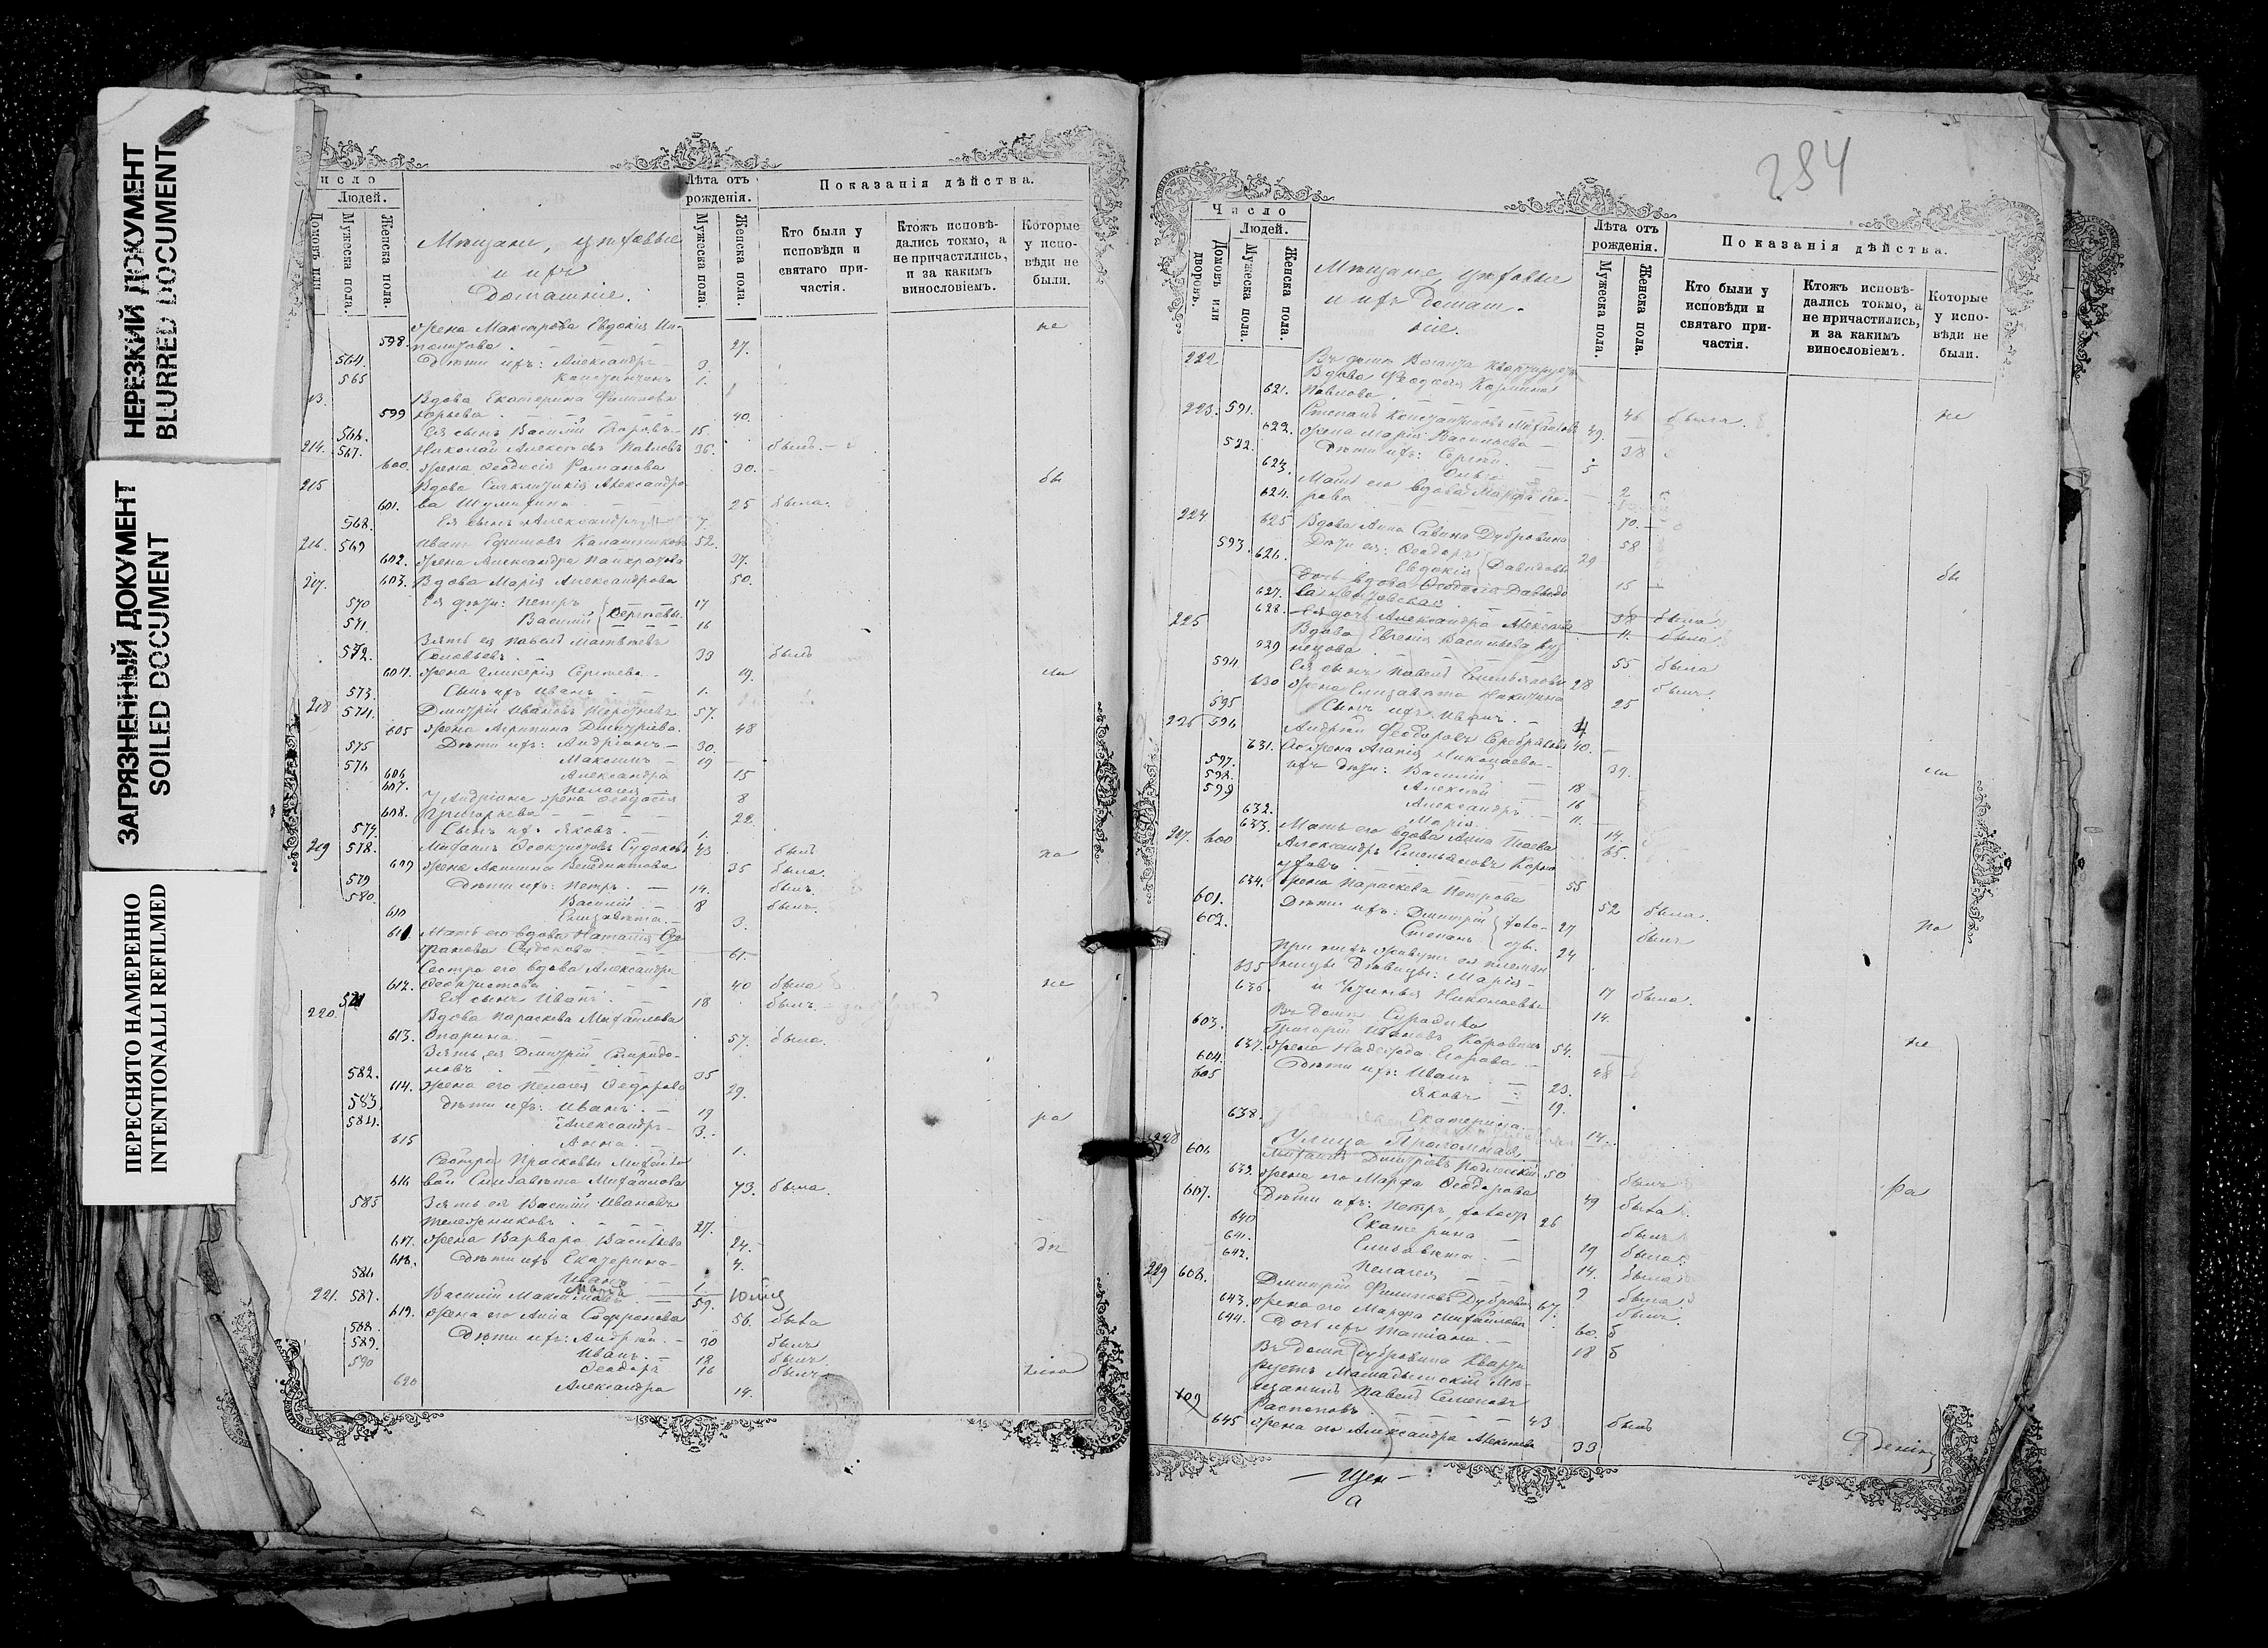 НЕРЕЗКИЙ ДОКУМЕНТ
BLURRED DOCUMENT
ЗАГРЯЗНЕННЫЙ ДОКУМЕНТ
SOILED DOCUMENT
ПЕРЕСНЯТО НАМЕРЕННО
INTENTIONALLI REFILMED
исло
Людей.
Домовъ или
Мужеска пола.
Женска пола.
Мѣщане, цеховые
и ихъ
Домашніе.
Лѣта отъ рожденія.
Мужеска пола.
Женска пола.
Показанія дѣйства.
Кто были у исповѣди и святаго причастія.
Ктожъ исповѣдались токмо, а не причастились, и за какимъ винословіемъ.
Которые у исповѣди не были.
598. Жена Макарова Евдокія 27. не
564. Дѣти ихъ: Александръ 3.
565 Константинъ 1.
13. Вдова Екатерина Филипова
599 Юрьева 40.
566. Ея сынъ Василій Егоровъ 15
214. 567. Николай Алексѣевъ Павловъ 36. былъ
600. Жена Ѳеодосія Романова 30.
215 Вдова Синклитикія Александро бы
601. ва Шумихина 25 была.
568. Ея сынъ Александръ 7.
216. 569 Иванъ Ефимовъ Калашниковъ 52.
602. Жена Александра Панкратова 37.
217. 603. Вдова Марія Александрова 50.
570 Ея дѣти: Петръ 17
571. Василій Сергѣевы 16
Зять ея Павелъ Матвѣевъ
572. Соловьевъ 33 былъ
604. Жена Гликерія Сергѣева 19. ли
573. Сынъ ихъ Иванъ 1.
218 574. Дмитрій Ивановъ 57.
605 Жена Агрипина Дмитріева 48
575 Дѣти ихъ: Андріанъ 30.
576 Максимъ 19
606 Александра 15
607. Пелагея 8
У Андріана жена Ѳеодосія
608. Григорьева 22.
577. Сынъ ихъ Яковъ 1.
219 578. Михаилъ Ѳеоктистовъ Судаковъ 43 былъ по
609 Жена Акилина Венедиктова 35 была.
579 Дѣти ихъ: Петръ 14. былъ.
580 Василій 8 былъ.
610 Елизавета 3.
611 Мать его вдова Наталія Сте
фанова Судокова 61.
Сестра его вдова Александра
612. Ѳеоктистова 40 была не
Ея сынъ Иванъ 18 былъ
220. Вдова Параскева Михайлова
613. Опарина 57. была.
Зять ея Дмитрій Спиридо-
582. новъ 35
614. Жена его Пелагея Ѳедорова 29.
583. Дѣти ихъ: Иванъ 19
584. Александръ 3. ра
615 Анна 1.
Сестра Прасковьи Михайло
616 вой Елизавета Михайлова 73. была.
585 Зять ея Василій Ивановъ
Тележниковъ 27.
617. Жена Варвара Васильева 24. дѣ
618. Дѣти ихъ Екатерина 4.
586 Иванъ 1.
221. 587. Василій Максимовъ 59.
619. Жена его Анна Софронова 56. была
588. Дѣти ихъ: Андрей 30 былъ
589. Иванъ 18 былъ.
590 Ѳеодоръ 16 былъ
620 Александра 14.
284
Число
Людей.
Домовъ или дворовъ.
Мужеска пола.
Женска пола
Мѣщане цеховые
и ихъ домаш-
ніе.
Лѣта отъ рожденія.
Мужеска пола.
Женска пола.
Показанія дѣйства.
Кто были у исповѣди и святаго причастія.
Ктожъ исповѣдались токмо, а не причастились, и за какимъ винословіемъ.
Которые у исповѣди не были.
222 Въ домѣ квартируетъ
Вдова Ѳеодосія Козмина
621. Павлова 46 была. не
223. 591. Степанъ Константиновъ Михайловъ 49.
622. Жена Марія Васильева 38
592. Дѣти ихъ: Сергѣй 5
623. Ольга 2
Мать его вдова Марфа
624. рова 70.
224 625 Вдова Анна Савина Дубровина 58
593. Дѣти ея: Ѳеодоръ 29 бы
626. Евдокія Давидовы 15
Дочь вдова Ѳеодосія Давыдо
627. 38 была
628. Ея дочь Александра 11. была
225 Вдова Евгенія Васильева Куз
629 нецова 55 была
594 Ея сынъ Павелъ Емельяновъ 28 былъ.
630 Жена Елизавета Никитина 25
595 Сынъ ихъ Иванъ 4
226 596 Андрей Ѳеодоровъ Серебряковъ 40.
631. Его жена Агапія Николаева 39. ли
597. Ихъ дѣти: Василій 18
598. Алексѣй 16
599 Александръ 11.
632. Марія 14.
633. Мать его вдова Анна 65.
227. 600 Александръ Емельяновъ
уховъ 55
634. Жена Параскева Петрова 52 была.
601. Дѣти ихъ: Дмитрій 27 былъ по
602. Степанъ 24
При нихъ живутъ ея племян
635 ницы дѣвицы: Марія 17 была.
636. и Николаевы 14.
Въ домѣ
603. Григорій Ивановъ Коровинъ 54. не
637. Жена Надежда Егорова 48
604. Дѣти ихъ: Иванъ 23.
605 Яковъ 19.
638. Екатерина 14.
Улица Проломная
228 606 Михаилъ Дмитріевъ 50 былъ
639. Жена его Марфа Ѳеодорова 49 была. ра
607. Дѣти ихъ: Петръ, холостъ 26 былъ
640 Екатерина 19 была.
641. Елизавета 14. была
642. Пелагея 9 была.
229 608. Дмитрій Филиповъ Дубровинъ 67. былъ.
643. Жена его Марфа Михайлова 60. б
644. Дочь ихъ Татіана 18 б
Въ домѣ Дубровина кварти
руетъ Мамадышскій мѣ-
щанинъ Павелъ Семеновъ
609 Распоповъ 43 былъ
645 Жена его Александра Алексѣева 33